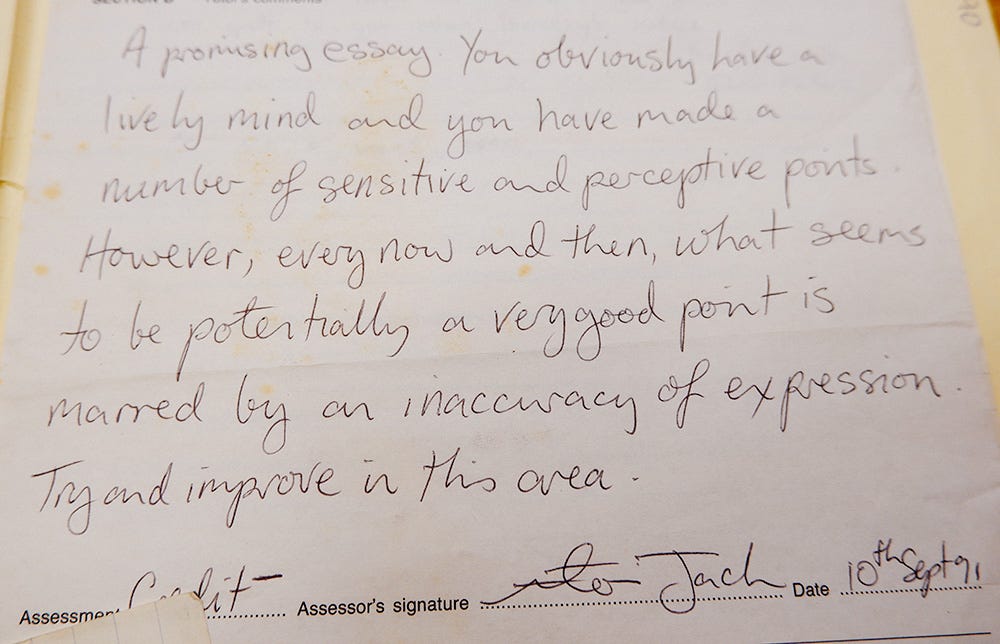 A promising essay. You obviously have a
lively mind and you have made a
number of sensitive and perceptive points.
However, every now and then, what seems
to be potentially a very good point is
marred by an inaccuracy of expression.
Try and improve in this area.
Assessment Credit Assessor's signature Jack Date 10th Sept 91